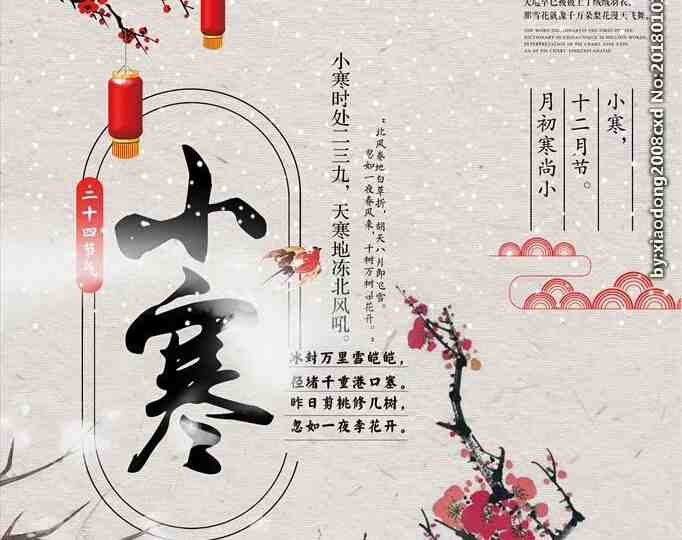 那雪花就象千万朵梨花漫天飞舞。
小寒，
十二月节。
月初寒尚小
小寒时处二三九，天寒地冻北风吼。
北风卷地白草折，胡天八月即飞雪。
忽如一夜春风来，千树万树梨花开。
小寒
二十四节气
冰封万里雪皑皑，
径堵千重港口塞。
昨日剪桃修几树，
忽如一夜李花开。
by:xiaodong2008cxd No:2018010